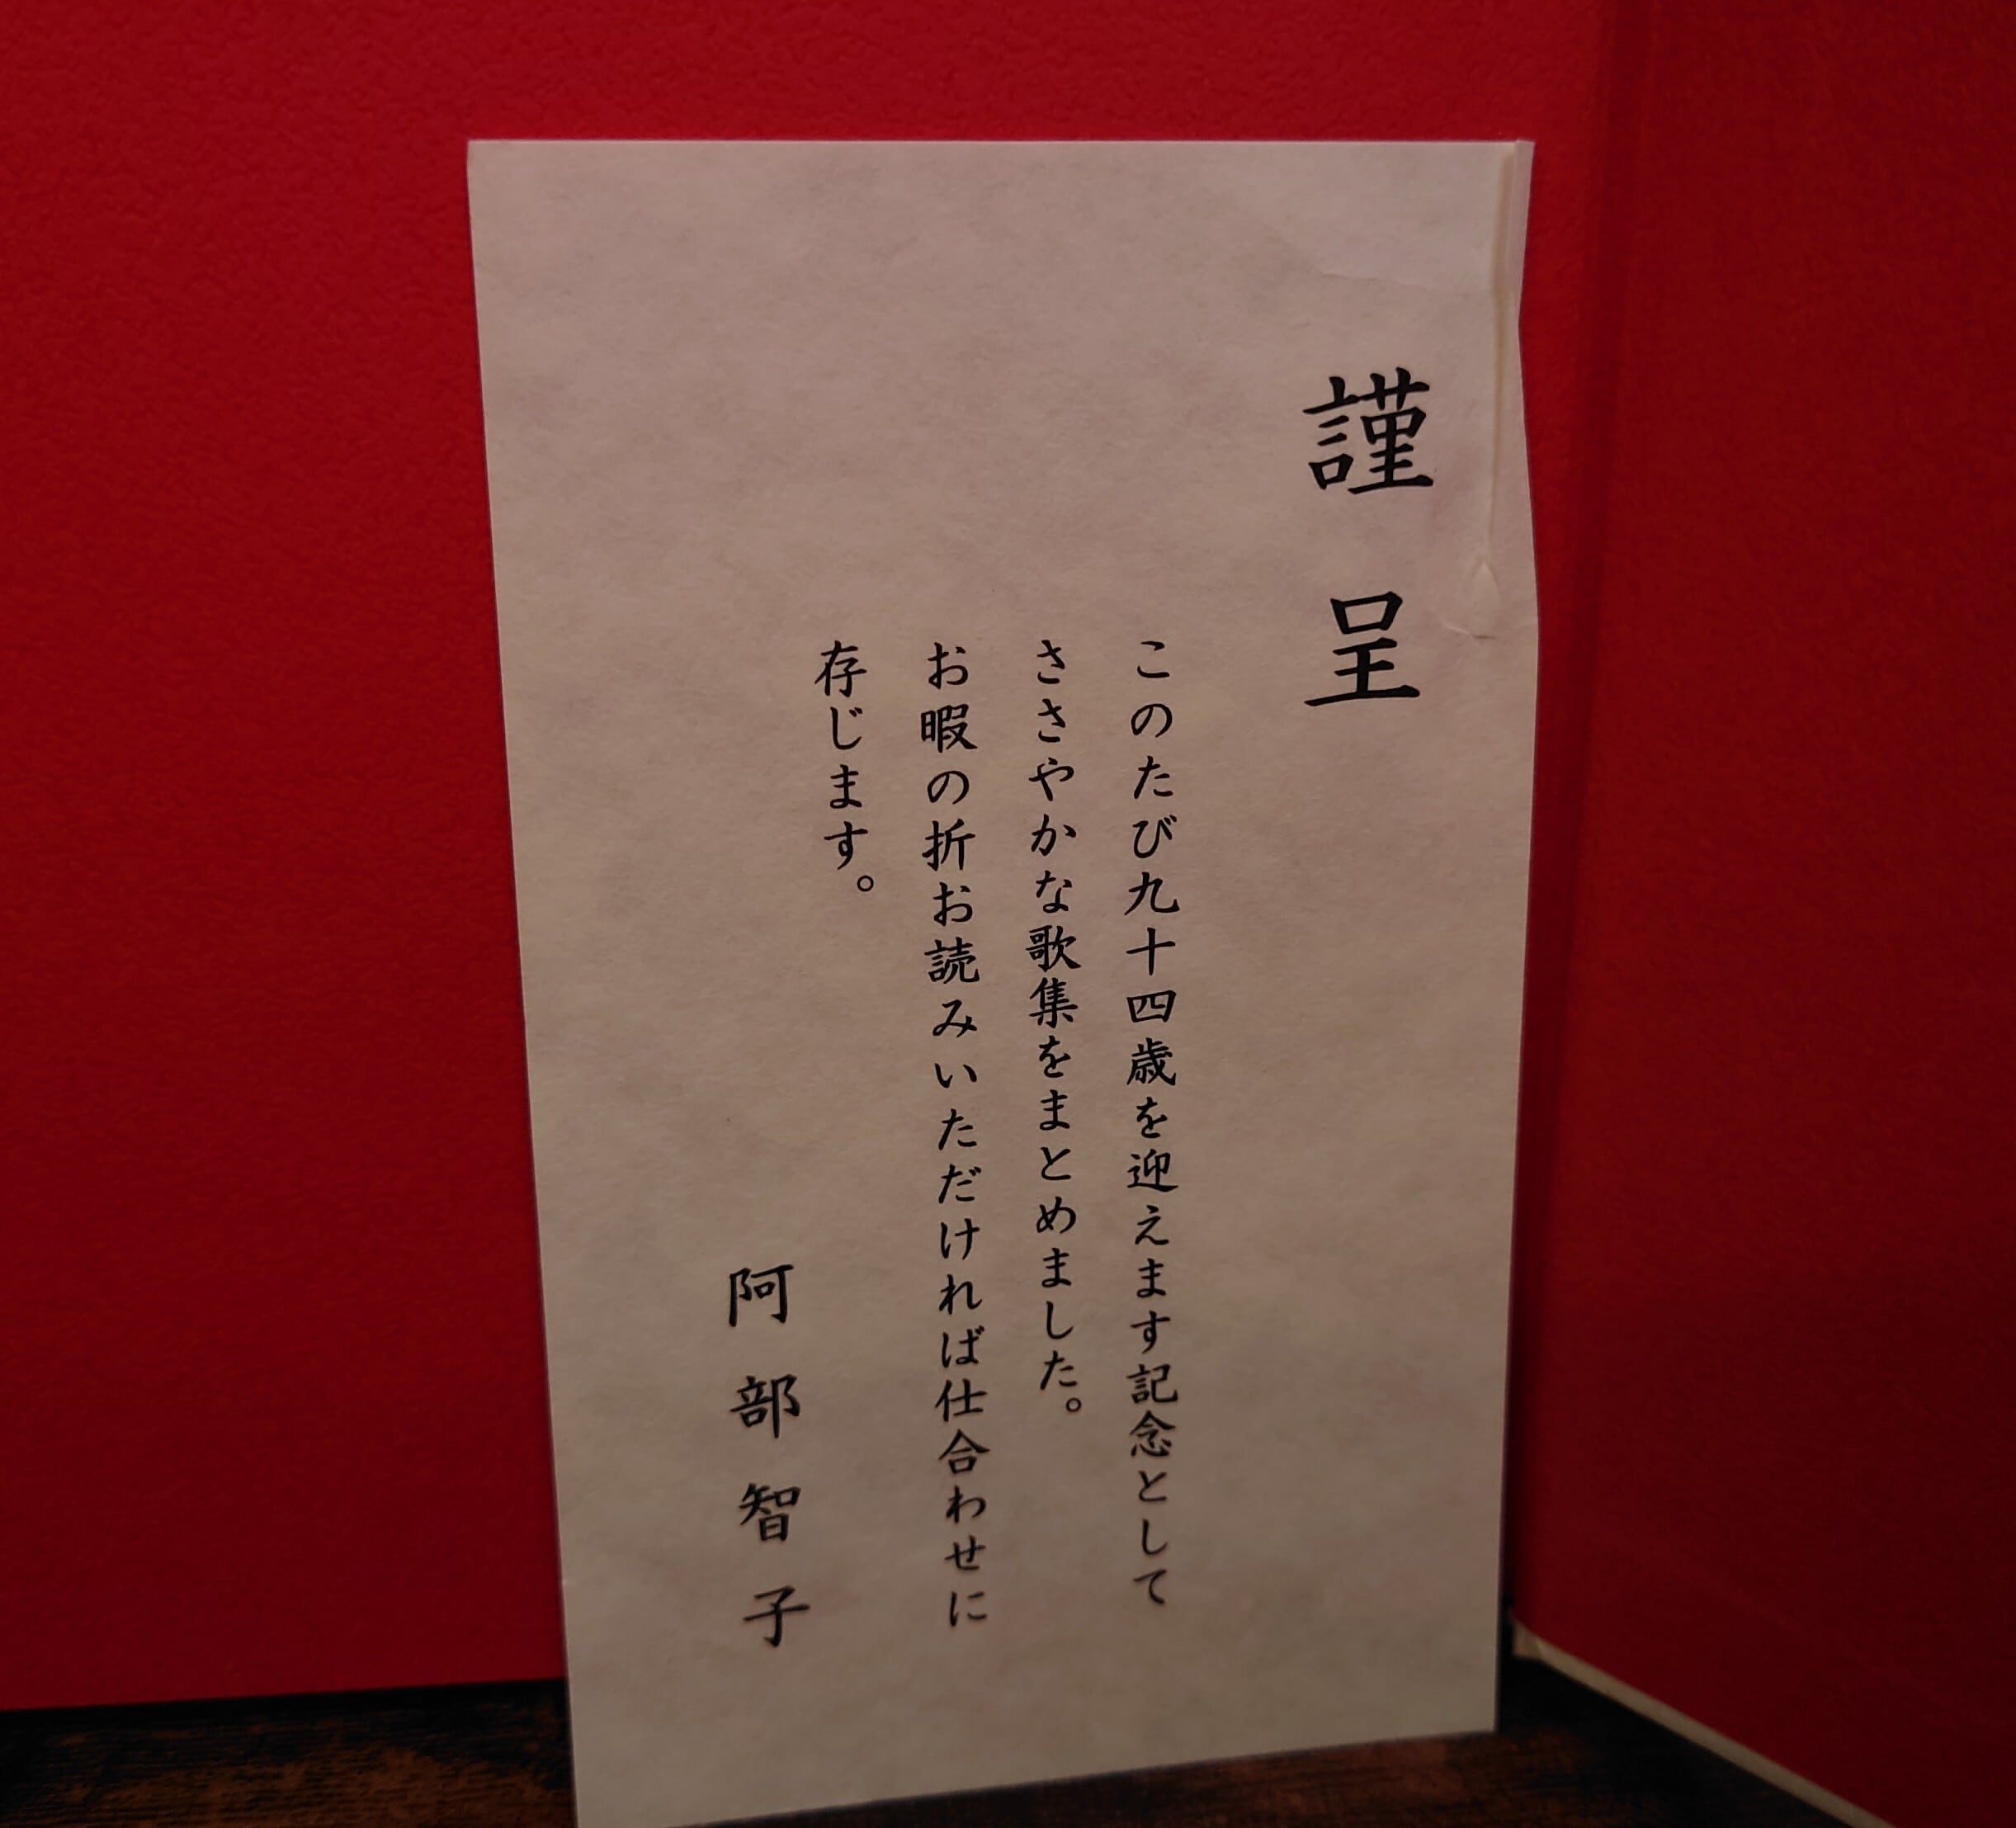 謹呈
このたび九十四歳を迎えます記念として
ささやかな歌集をまとめました。
お暇の折お読みいただければ仕合わせに
存じます。
阿部智子